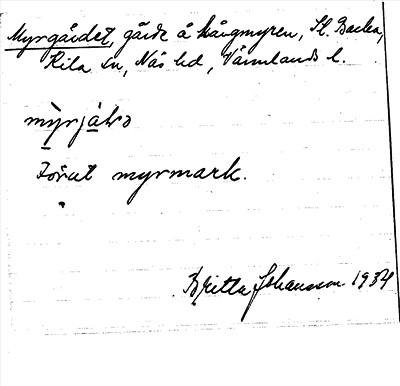 Myrgärdet, gärde å Långmyren, St. Backa,
Kila sn, Näs hd, Värmlands l.
Förut myrmark.
Britta Johansson 1934